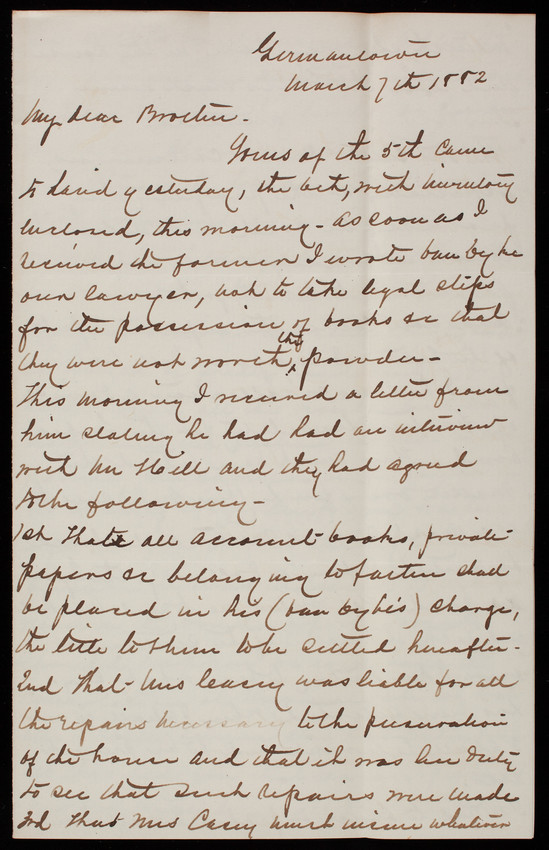 Germantown
March 7th 1882
My dear Brother.
Yours of the 5th came
to hand yesterday, the 6th, with inventory
enclosed, this morning - As soon as I
received the former I wrote
our lawyer, not to take legal steps
for the possession of books &c that
they were not worth the powder -
This morning I received a letter from
him stating he had had an interview
with Mr Hill and they had agreed
to the following -
1st That all account-books, private
papers &c belonging to father shall
be placed in his ( ) charge,
the title to them to be settled hereafter -
2nd That Mrs Casey was liable for all
the repairs necessary to the preservation
of the house and that it was her duty
to see that such repairs were made
3rd That Mrs Casey must insure whatever